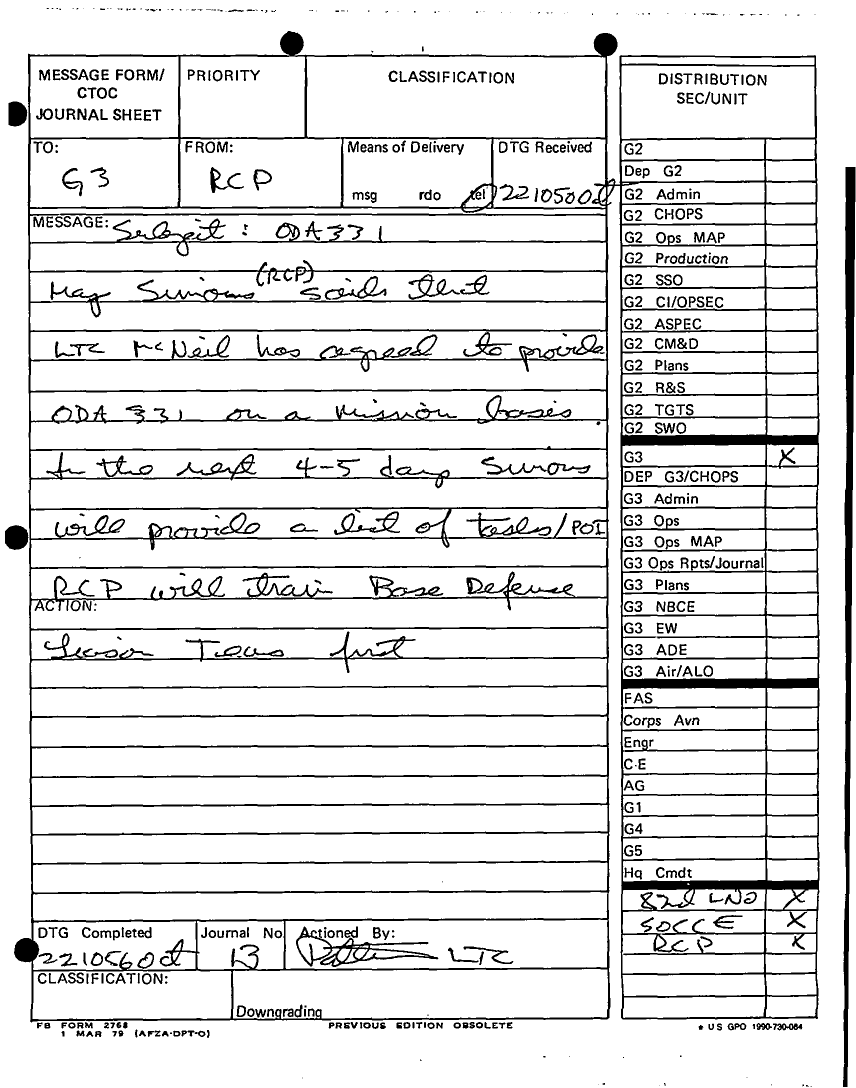 MESSAGE FORM/
CTOC
JOURNAL SHEET
PRIORITY
CLASSIFICATION
TO:
G3
FROM:
RCP
Means of Delivery
msg rdo tel
DTG Received
221050Od
MESSAGE:
: ODA 331
Maj Simons (RCP) said that
LTC McNeil has agreed to provide
ODA 331 on a mission bases.
In the next 4-5 days Simons
will provide a list of tasks/POI
RCP will train Base Defense
ACTION:
Liaison Teams first
DTG Completed
221056Od
Journal No
13
Actioned By:
LTC
CLASSIFICATION:
Downgrading
FB FORM 2768
1 MAR 79 (AFZA-DPT-O)
PREVIOUS EDITION OBSOLETE
DISTRIBUTION
SEC/UNIT
G2
Dep G2
G2 Admin
G2 CHOPS
G2 Ops MAP
G2 Production
G2 SSO
G2 CI/OPSEC
G2 ASPEC
G2 CM&D
G2 Plans
G2 R&S
G2 TGTS
G2 SWO
G3 X
DEP G3/CHOPS
G3 Admin
G3 Ops
G3 Ops MAP
G3 Ops Rpts/Journal
G3 Plans
G3 NBCE
G3 EW
G3 ADE
G3 Air/ALO
FAS
Corps Avn
Engr
C-E
AG
G1
G4
G5
Hq Cmdt
82d LNO X
SOCCE X
RCP X
* US GPO 1990-730-084